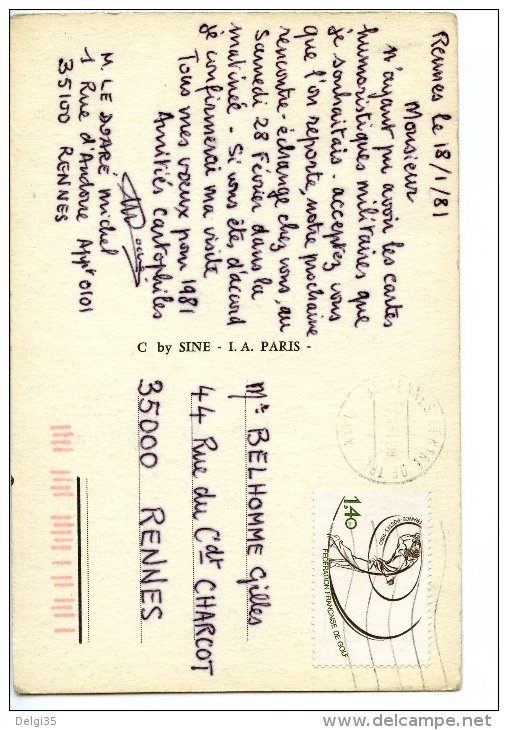 Rennes le 18/1/81
Monsieur
n'ayant pu avoir les cartes
humoristiques militaires que
je souhaitais - acceptez vous
que l'on reporte, notre prochaine
rencontre - échange chez vous, au
Samedi 28 Février dans la
matinée - Si vous êtes d'accord
je confirmerai ma visite
Tous mes vœux pour 1981
Amitiés cartophiles
M LE DOARÉ Michel
1 Rue d'Andorre Appt 0101
35100 RENNES
C by SINE - I. A. PARIS -
Mr BELHOMME Gilles
44 Rue du Cdt CHARCOT
35000 RENNES
RENNES
CENTRE DE TRI
1,40
FRANCE-POSTES-1980
FEDERATION FRANCAISE DE GOLF
Delgi35
www.delcampe.net